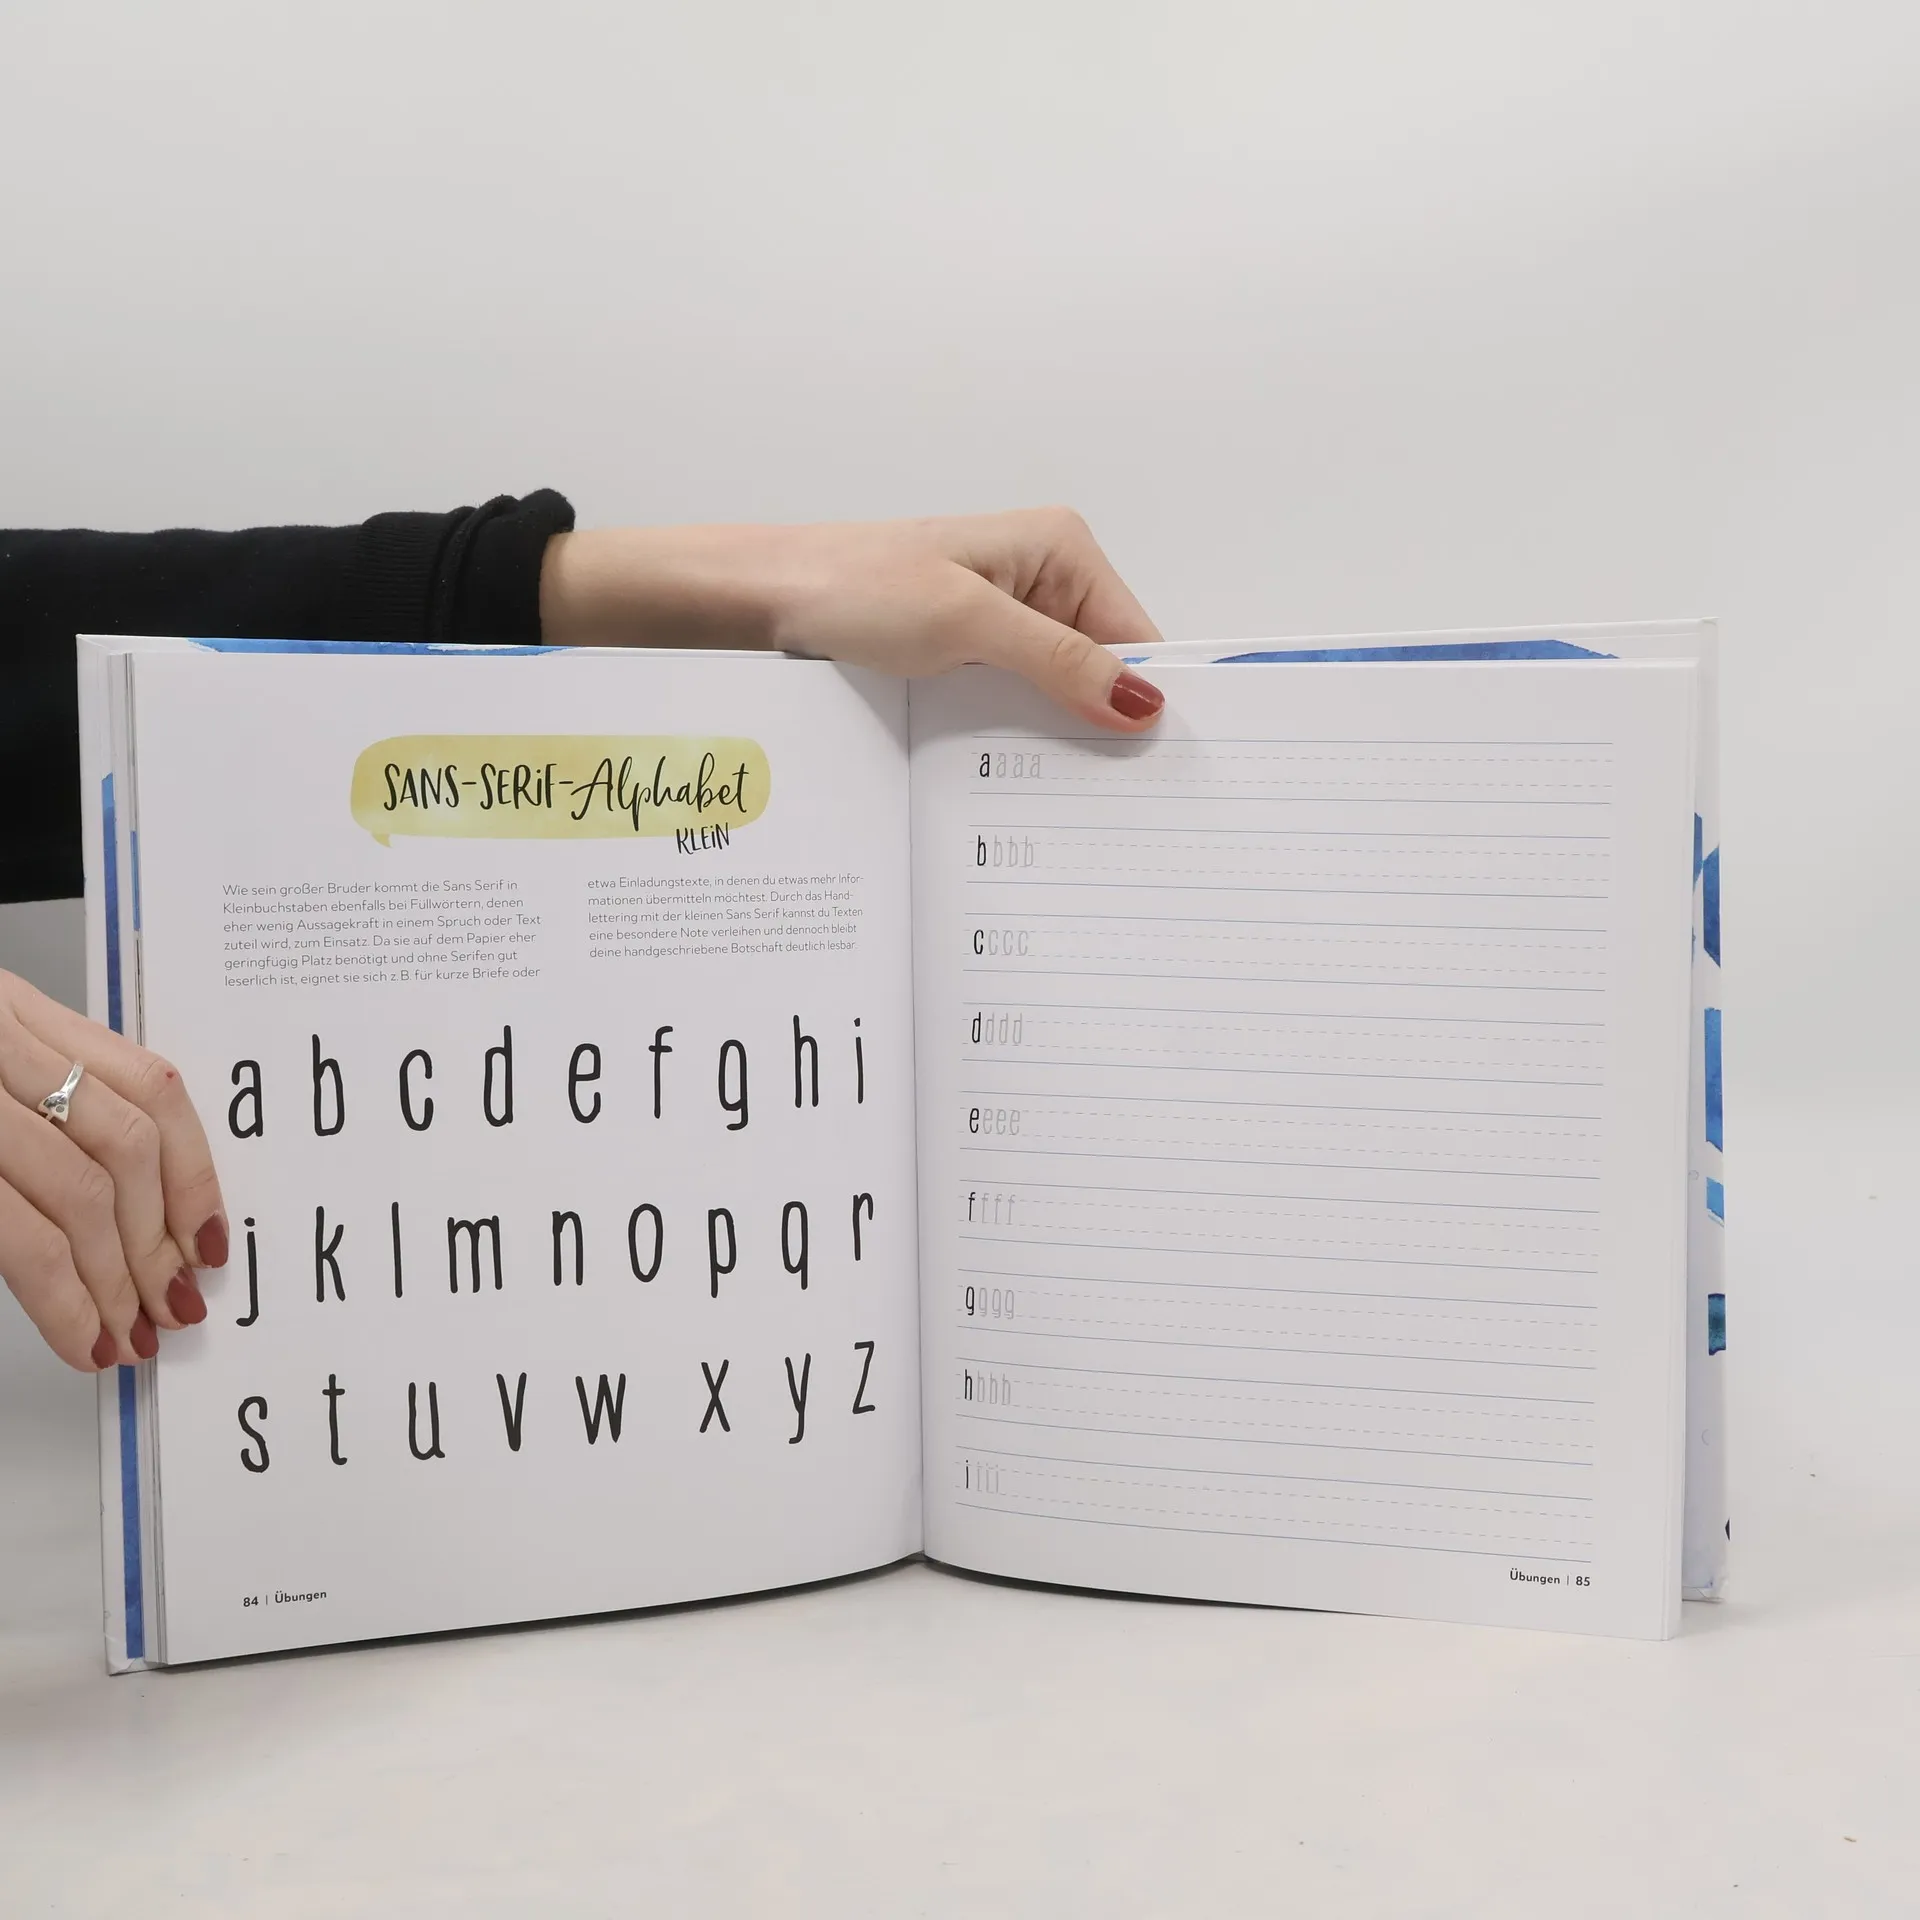 SANS-SERiF-Alphabet
KLEiN
Wie sein großer Bruder kommt die Sans Serif in
Kleinbuchstaben ebenfalls bei Füllwörtern, denen
eher wenig Aussagekraft in einem Spruch oder Text
zuteil wird, zum Einsatz. Da sie auf dem Papier eher
geringfügig Platz benötigt und ohne Serifen gut
leserlich ist, eignet sie sich z.B. für kurze Briefe oder
etwa Einladungstexte, in denen du etwas mehr Infor-
mationen übermitteln möchtest. Durch das Hand-
lettering mit der kleinen Sans Serif kannst du Texten
eine besondere Note verleihen und dennoch bleibt
deine handgeschriebene Botschaft deutlich lesbar.
a b c d e f g h i
j k l m n o p q r
s t u v w x y z
84 | Übungen
a a a a
b b b b
c c c c
d d d d
e e e e
f f f f
g g g g
h h h h
i i i i
Übungen | 85